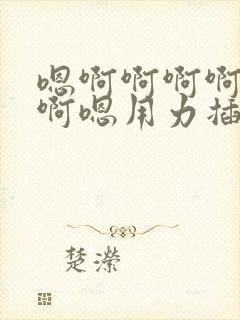 嗯啊啊啊啊
啊嗯用力插
楚濴